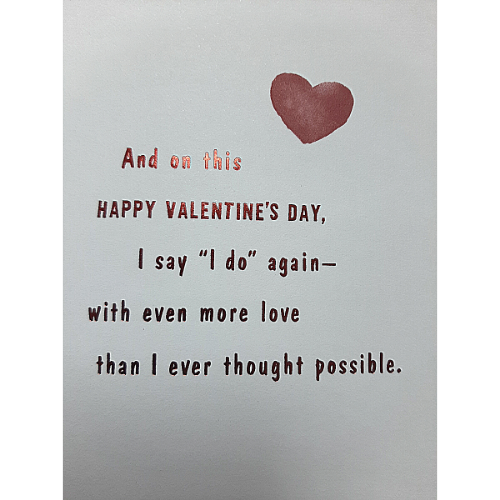 And on this
HAPPY VALENTINE'S DAY,
I say "I do" again—
with even more love
than I ever thought possible.